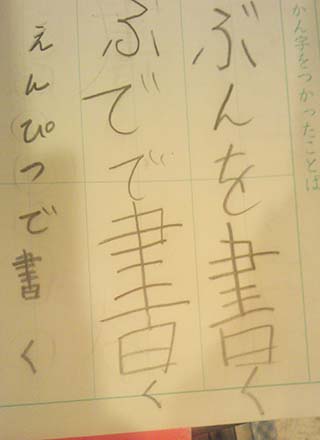 かん字をつかったことば
ぶんを書く
ふでで書く
えんぴつで書く